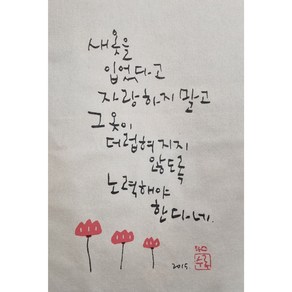 새옷을
입었다고
자랑하지 말고
그 옷이
더럽혀지지
않도록
노력해야
한다네.
2015.